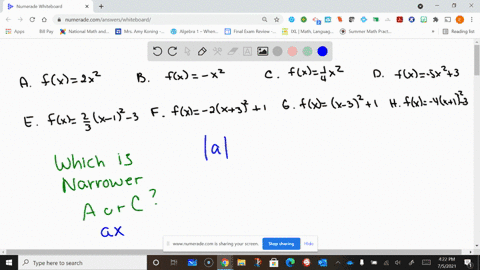 Numerade Whiteboard
numerade.com/answers/whiteboard/
Apps
Bill Pay
National Math and...
Mrs. Amy Koning -...
Algebra 1 - When...
Final Exam Review -...
IXL | Math, Languag...
Summer Math Pract...
Reading list
A. f(x)=2x²
B. f(x)=-x²
C. f(x)=1/4x²
D. f(x)=-5x²+3
E. f(x)=2/3(x-1)²-3
F. f(x)=-2(x+3)²+1
G. f(x)=(x-3)²+1
H. f(x)=-4(x+1)²-3
Which is
Narrower
A or C?
ax
|a|
www.numerade.com is sharing your screen.
Stop sharing
Hide
Type here to search
4:22 PM
7/5/2021